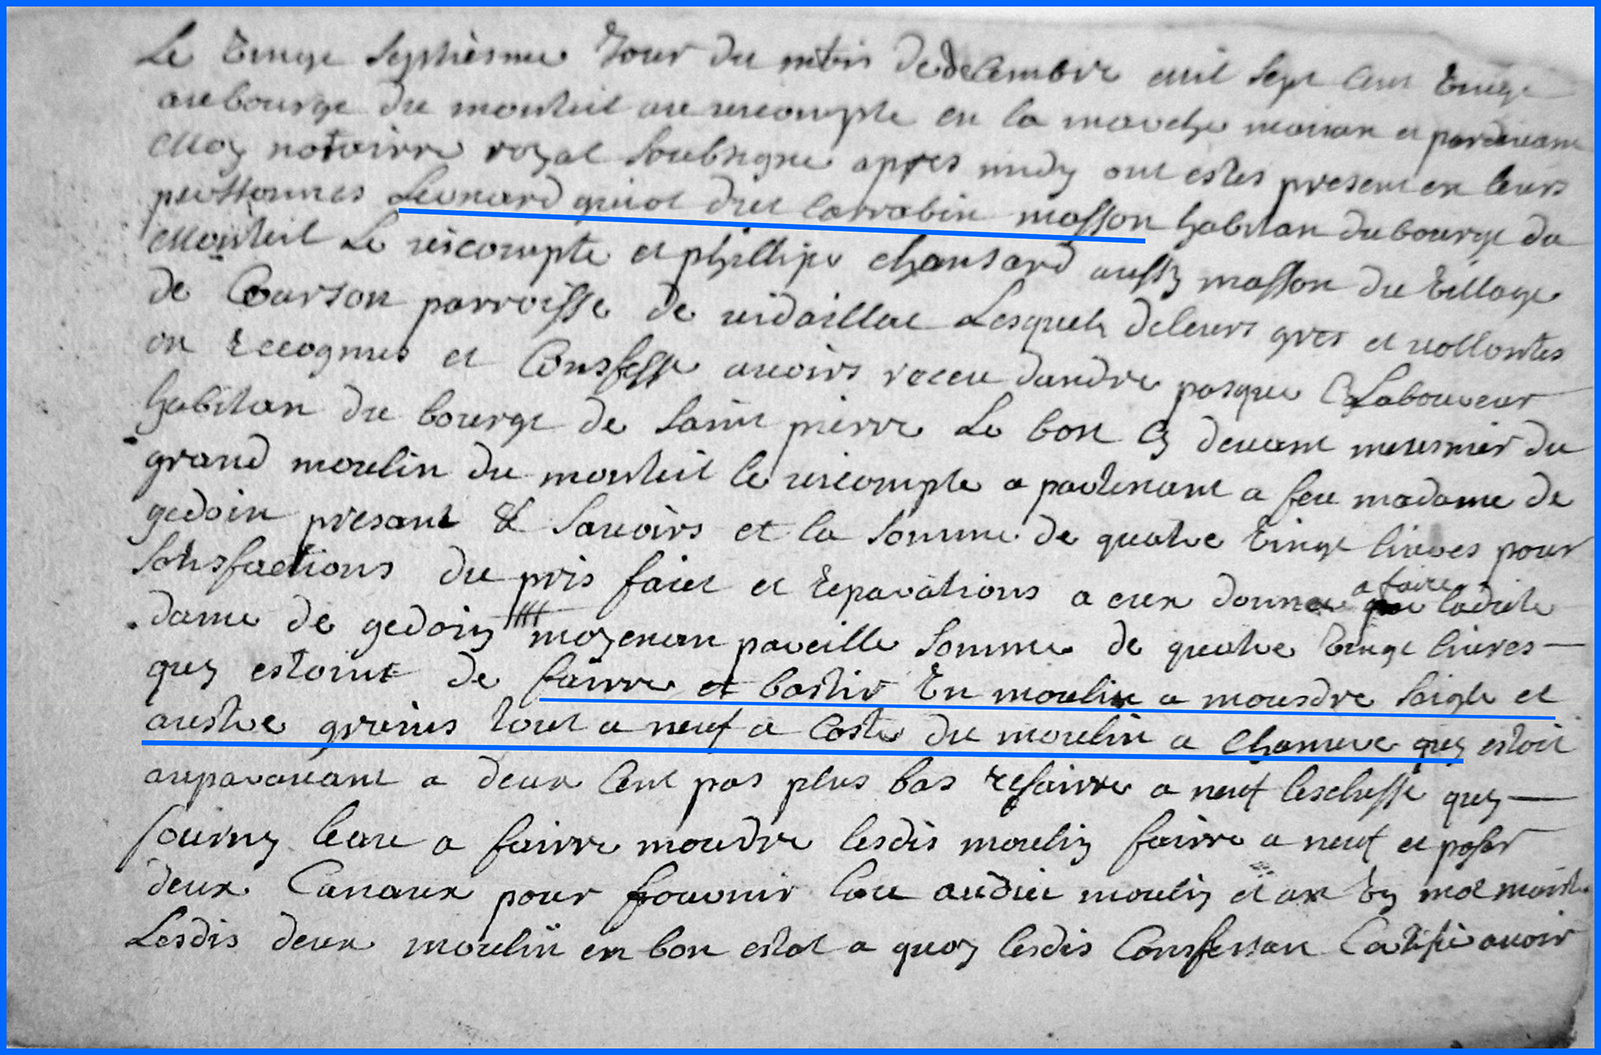 Le vingt septiesme Jour du mois de decembre mil sept cent vingt
au bourge du monteil au vicompte en la marche maison et pardevant
Moy notairre royal soubsigne apres midy ont estes present en leurs
personnes Leonard guiot diet carrabin masson habitan du bourge du
Monteil Le viscompte et phillipe chansard aussy masson du village
de Courson parroisse de vidaillac Lesquels de leurs gres et vollontes
on recognus et Consfesse avoirs receu dandre pasque Laboureur
habitan du bourge de saint pierre Le bon cy devant meusnier du
grand moulin du monteil le vicompte a partenant a feu madame de
gedoin presant & savoirs et la somme de quatre vingt livres pour
sotisfactions du pris faict et reparations a eux donne a faire ladicte
dame de gedoin moyenan pareille somme de quatre vingt livres
quy estoint de fairre et bastir un moulin a mousdre saigle et
austre grains tout a neuf a coste du moulin a chanvre quy estoit
auparavant a deux cent pas plus bas refairre a neuf lesclusse quy
fourny leau a fairre moudre lesdis moulin fairre a neuf et poser
deux Canaux pour frournir leau audict moulin et en un mot maistre
Lesdis deux moulin en bon estat a quoy lesdis Consfessan avoir